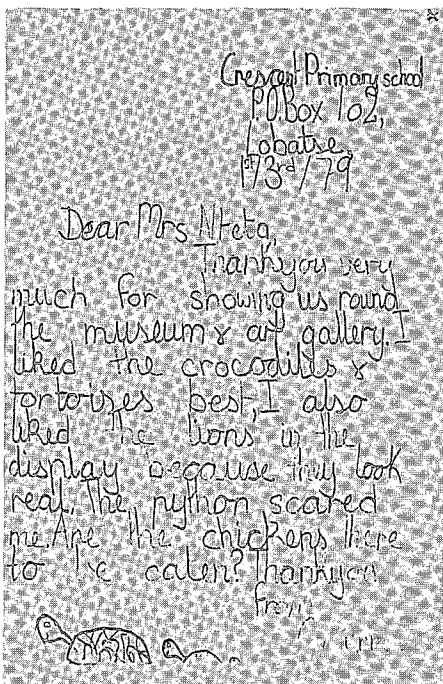 Crescent Primary school
P.O Box 102,
Lobatse,
Dear Mrs Nteta,
Thankyou very
much for showing us round
the museum & art gallery. I
liked the crocodiles &
tortoises best, I also
liked the lions in the
display because they look
real. The python scared
me. Are the chickens there
to be eaten? Thankyou
from